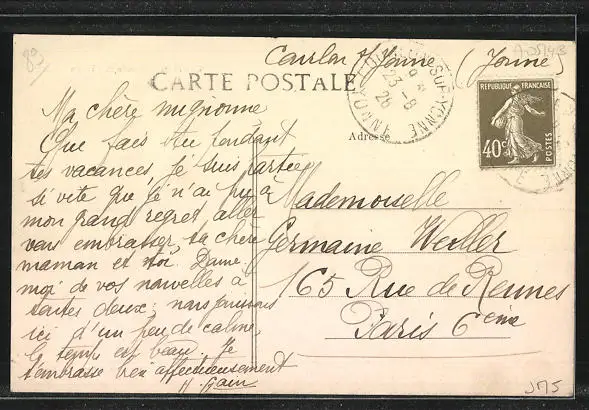 89
Courlon s/ Yonne (Yonne)
CARTE POSTALE
SUR-YONNE
23-8
26
YONNE
RÉPUBLIQUE FRANÇAISE
40c
POSTES
Adresse
Ma chère mignonne
Que fais tu pendant
tes vacances, je suis partie
si vite que je n'ai pu à
mon grand regret, aller
vous embrasser, ta chère
maman et toi. Donne
moi de vos nouvelles à
toutes deux: nous jouissons
ici d'un peu de calme,
le temps est beau. Je
t'embrasse bien affectueusement
Mademoiselle
Germaine Weller
165 Rue de Rennes
Paris 6eme